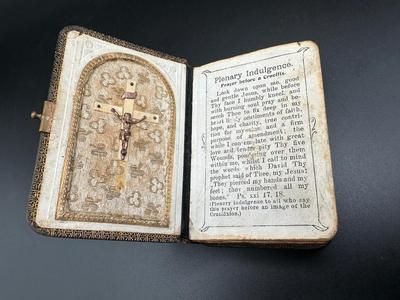 Plenary Indulgence.
Prayer before a Crucifix.
Look down upon me, good
and gentle Jesus, while before
Thy face I humbly kneel, and
with burning soul pray and be-
seech Thee to fix deep in my
heart lively sentiments of faith,
hope, and charity, true contri-
tion for my sins and a firm
purpose of amendment; the
while I contemplate with great
love and tender pity Thy five
Wounds, pondering over them
within me, whilst I call to mind
the words which David Thy
prophet said of Thee, my Jesus:
"They pierced my hands and my
feet; they numbered all my
bones." Ps. xxi 17, 18.
(Plenary Indulgence to all who say
this prayer before an image of the
Crucifixion.)